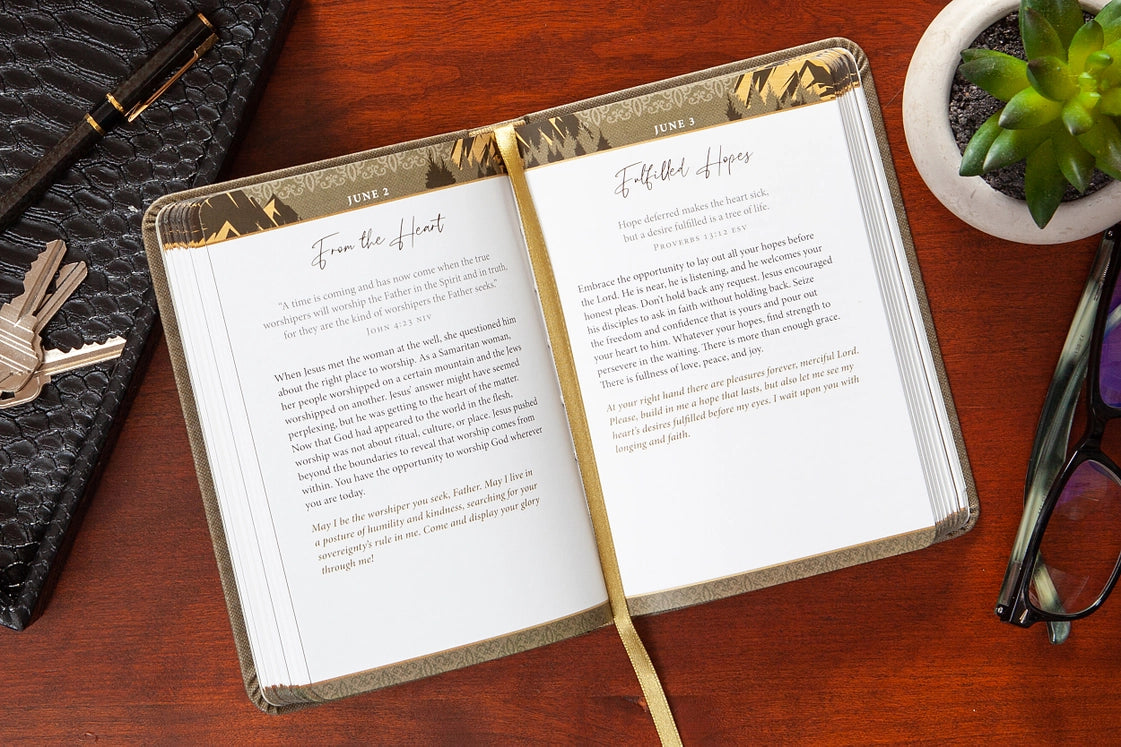 JUNE 2
From the Heart
"A time is coming and has now come when the true
worshipers will worship the Father in the Spirit and in truth,
for they are the kind of worshipers the Father seeks."
JOHN 4:23 NIV
When Jesus met the woman at the well, she questioned him
about the right place to worship. As a Samaritan woman,
her people worshipped on a certain mountain and the Jews
worshipped on another. Jesus' answer might have seemed
perplexing, but he was getting to the heart of the matter.
Now that God had appeared to the world in the flesh,
worship was not about ritual, culture, or place. Jesus pushed
beyond the boundaries to reveal that worship comes from
within. You have the opportunity to worship God wherever
you are today.
May I be the worshiper you seek, Father. May I live in
a posture of humility and kindness, searching for your
sovereignty's rule in me. Come and display your glory
through me!
JUNE 3
Fulfilled Hopes
Hope deferred makes the heart sick,
but a desire fulfilled is a tree of life.
PROVERBS 13:12 ESV
Embrace the opportunity to lay out all your hopes before
the Lord. He is near, he is listening, and he welcomes your
honest pleas. Don't hold back any request. Jesus encouraged
his disciples to ask in faith without holding back. Seize
the freedom and confidence that is yours and pour out
your heart to him. Whatever your hopes, find strength to
persevere in the waiting. There is more than enough grace.
There is fullness of love, peace, and joy.
At your right hand there are pleasures forever, merciful Lord.
Please, build in me a hope that lasts, but also let me see my
heart's desires fulfilled before my eyes. I wait upon you with
longing and faith.